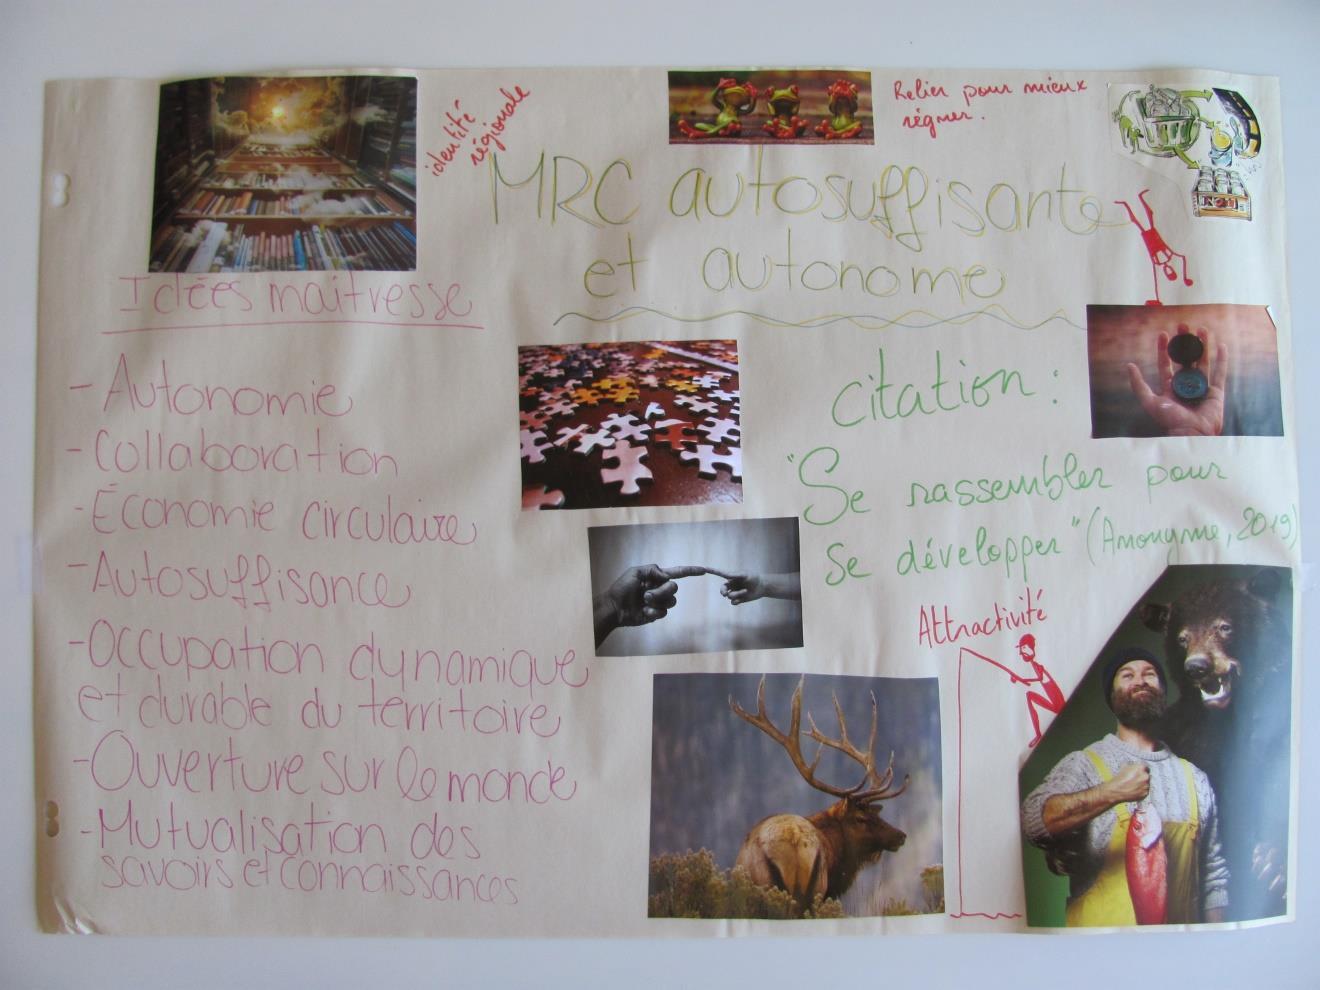 identité
régionale
Relier pour mieux
régner.
MRC autosuffisante
et autonome
Idées maitresse
- Autonomie
- Collaboration
- Économie circulaire
- Autosuffisance
- Occupation dynamique
et durable du territoire
- Ouverture sur le monde
- Mutualisation des
savoirs et connaissances
citation :
"Se rassembler pour
se développer" (Anonyme, 2019)
Attractivité